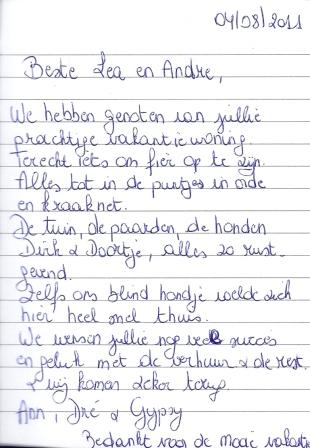 04/08/2011
Beste Lea en Andre,
We hebben genoten van jullie
prachtige vakantiewoning.
Terecht iets om fier op te zijn.
Alles tot in de puntjes in orde
en kraaknet.
De tuin, de paarden, de honden
Dirk & Doortje, alles zo rust-
gevend.
Zelfs ons blind hondje voelde zich
hier heel snel thuis.
We wensen jullie nog veel succes
en geluk met de verhuur & de rest.
& wij komen zeker terug.
Ann, Dré & Gypsy
Bedankt voor de mooie vakantie